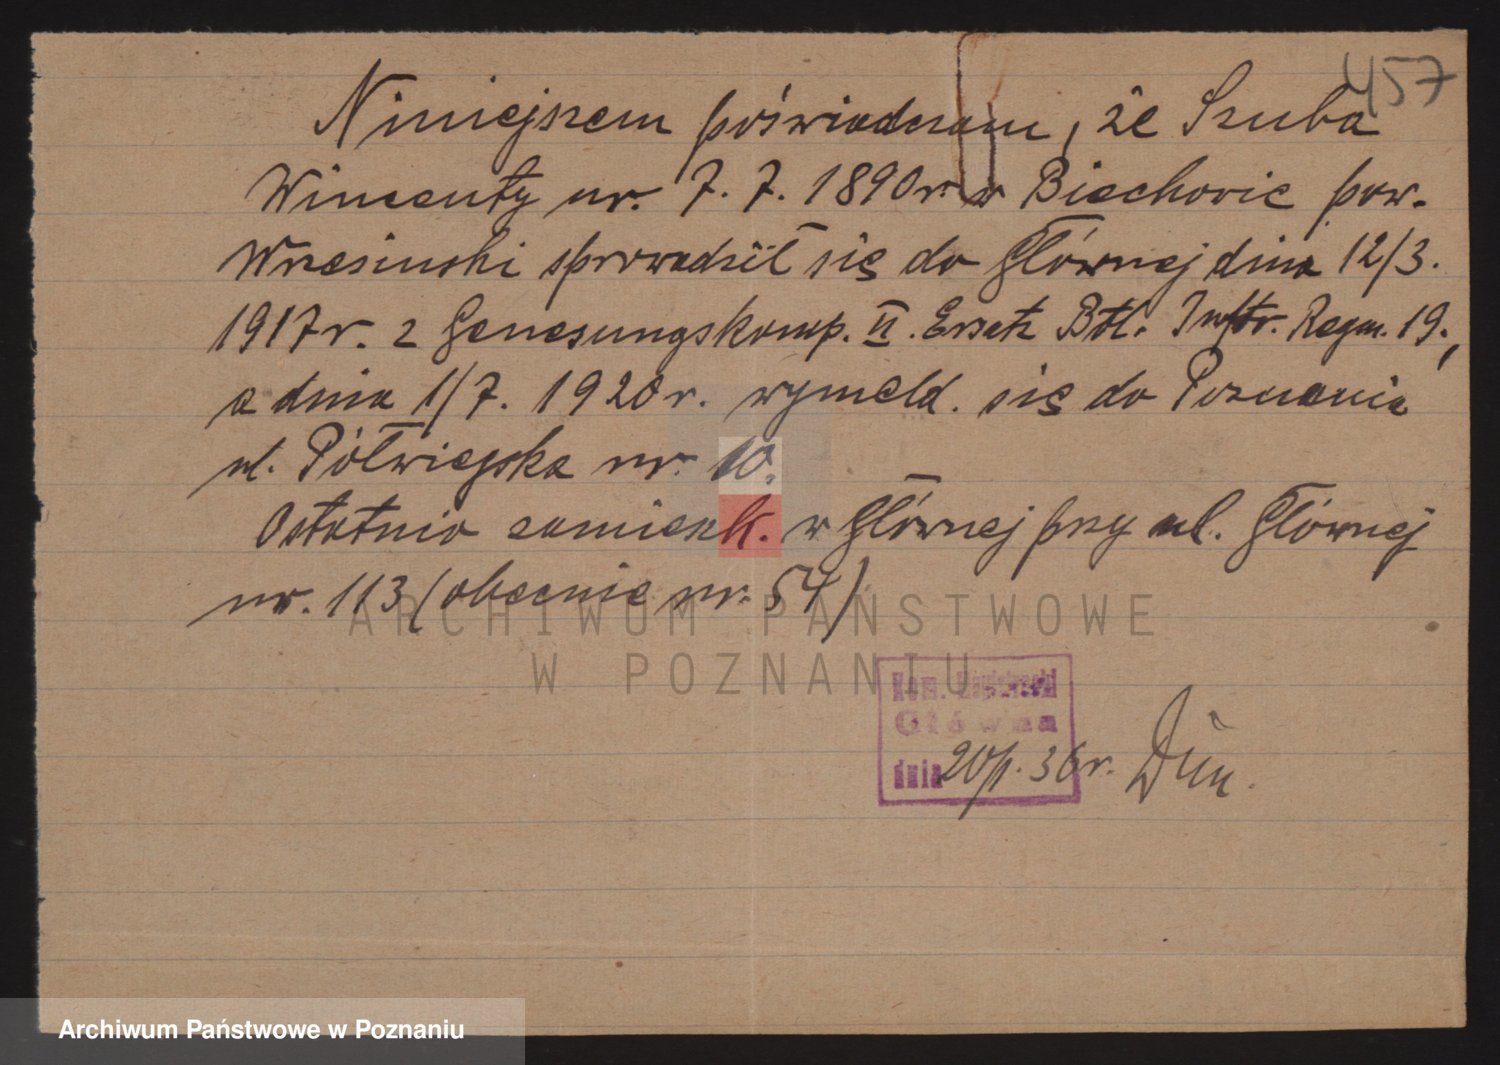 457
Niniejszem poświadczam, że Szuba
Wincenty ur. 7. 7. 1890 r. w Biechovie pow.
Wrzesinski sprowadził się do Głównej dnia 12/3.
1917 r. z Genesungskomp. II. Ersatz Btl. Inftr. Regm. 19.,
a dnia 1/7. 1920 r. wymeld. się do Poznania
ul. Półwiejska nr. 10.
Ostatnio zamieszk. w Głównej przy ul. Głównej
nr. 113 (obecnie nr. 54)
ARCHIWUM PAŃSTWOWE
W POZNANIU
Kom.
Główna
dnia 20/1. 36 r.
Archiwum Państwowe w Poznaniu